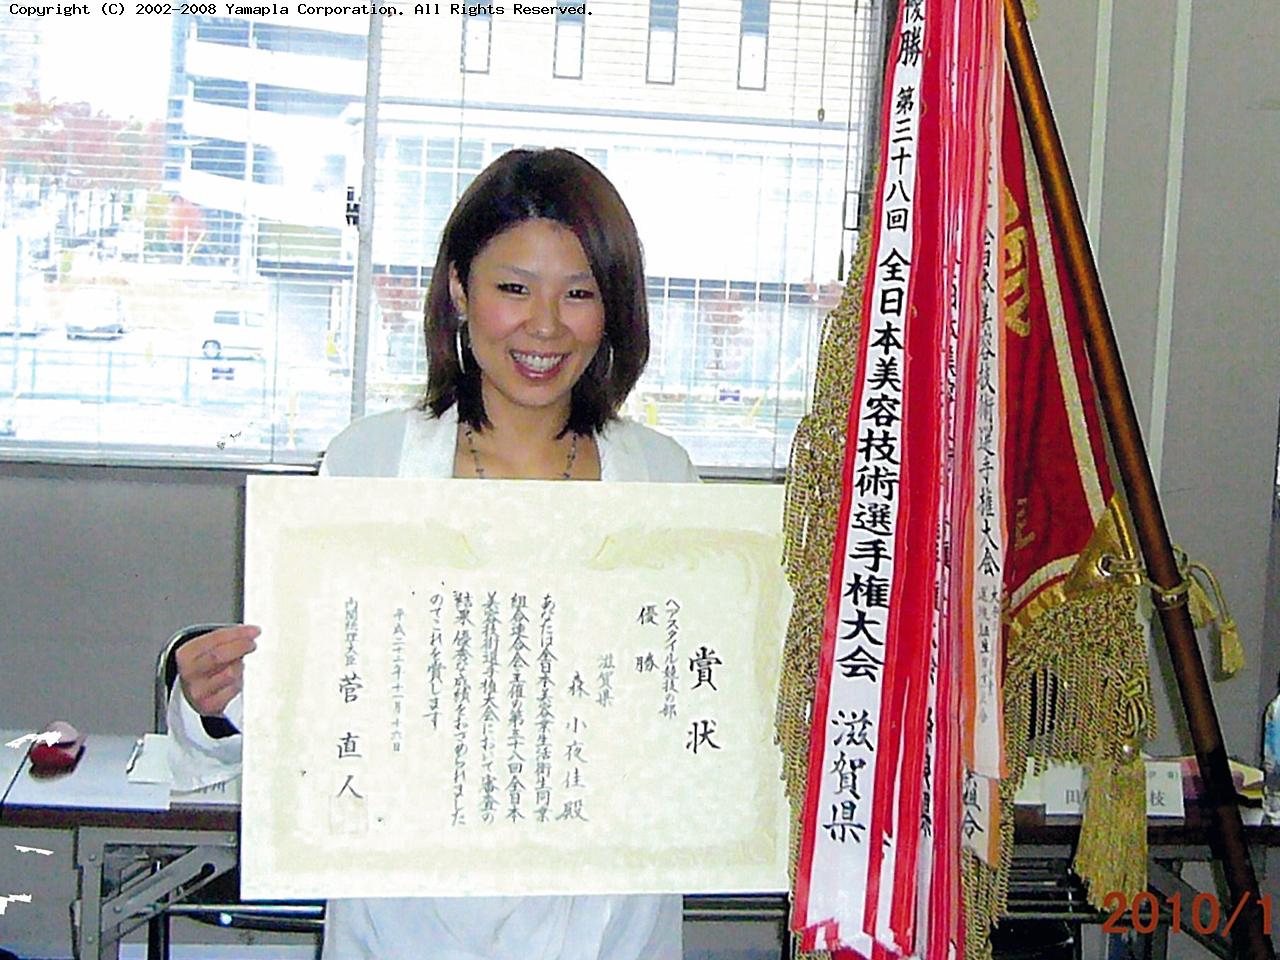 Copyright (C) 2002-2008 Yamapla Corporation. All Rights Reserved.
優勝 第三十八回 全日本美容技術選手権大会 滋賀県
全日本美容技術選手権大会
賞状
ヘアスタイル競技の部
優勝
滋賀県
森 小夜佳 殿
あなたは全日本美容業生活衛生同業
組合連合会主催の第三十八回全日本
美容技術選手権大会において審査の
結果優秀な成績をおさめられました
のでこれを賞します
平成二十二年十一月十六日
内閣総理大臣 菅 直人
2010/1